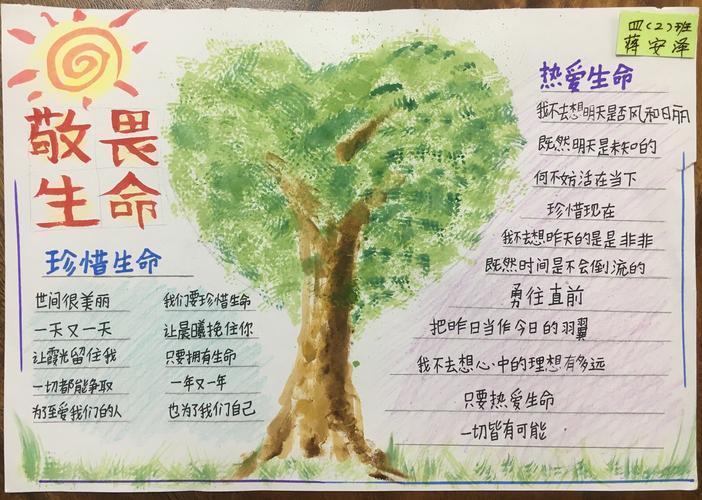 四(2)班
蒋安泽
敬畏
生命
珍惜生命
世间很美丽
一天又一天
让霞光留住我
一切都能争取
为了至爱我们的人
我们要珍惜生命
让晨曦挽住你
只要拥有生命
一年又一年
也为了我们自己
热爱生命
我不去想明天是否风和日丽
既然明天是未知的
何不妨活在当下
珍惜现在
我不去想昨天的是是非非
既然时间是不会倒流的
勇往直前
把昨日当作今日的羽翼
我不去想心中的理想有多远
只要热爱生命
一切皆有可能